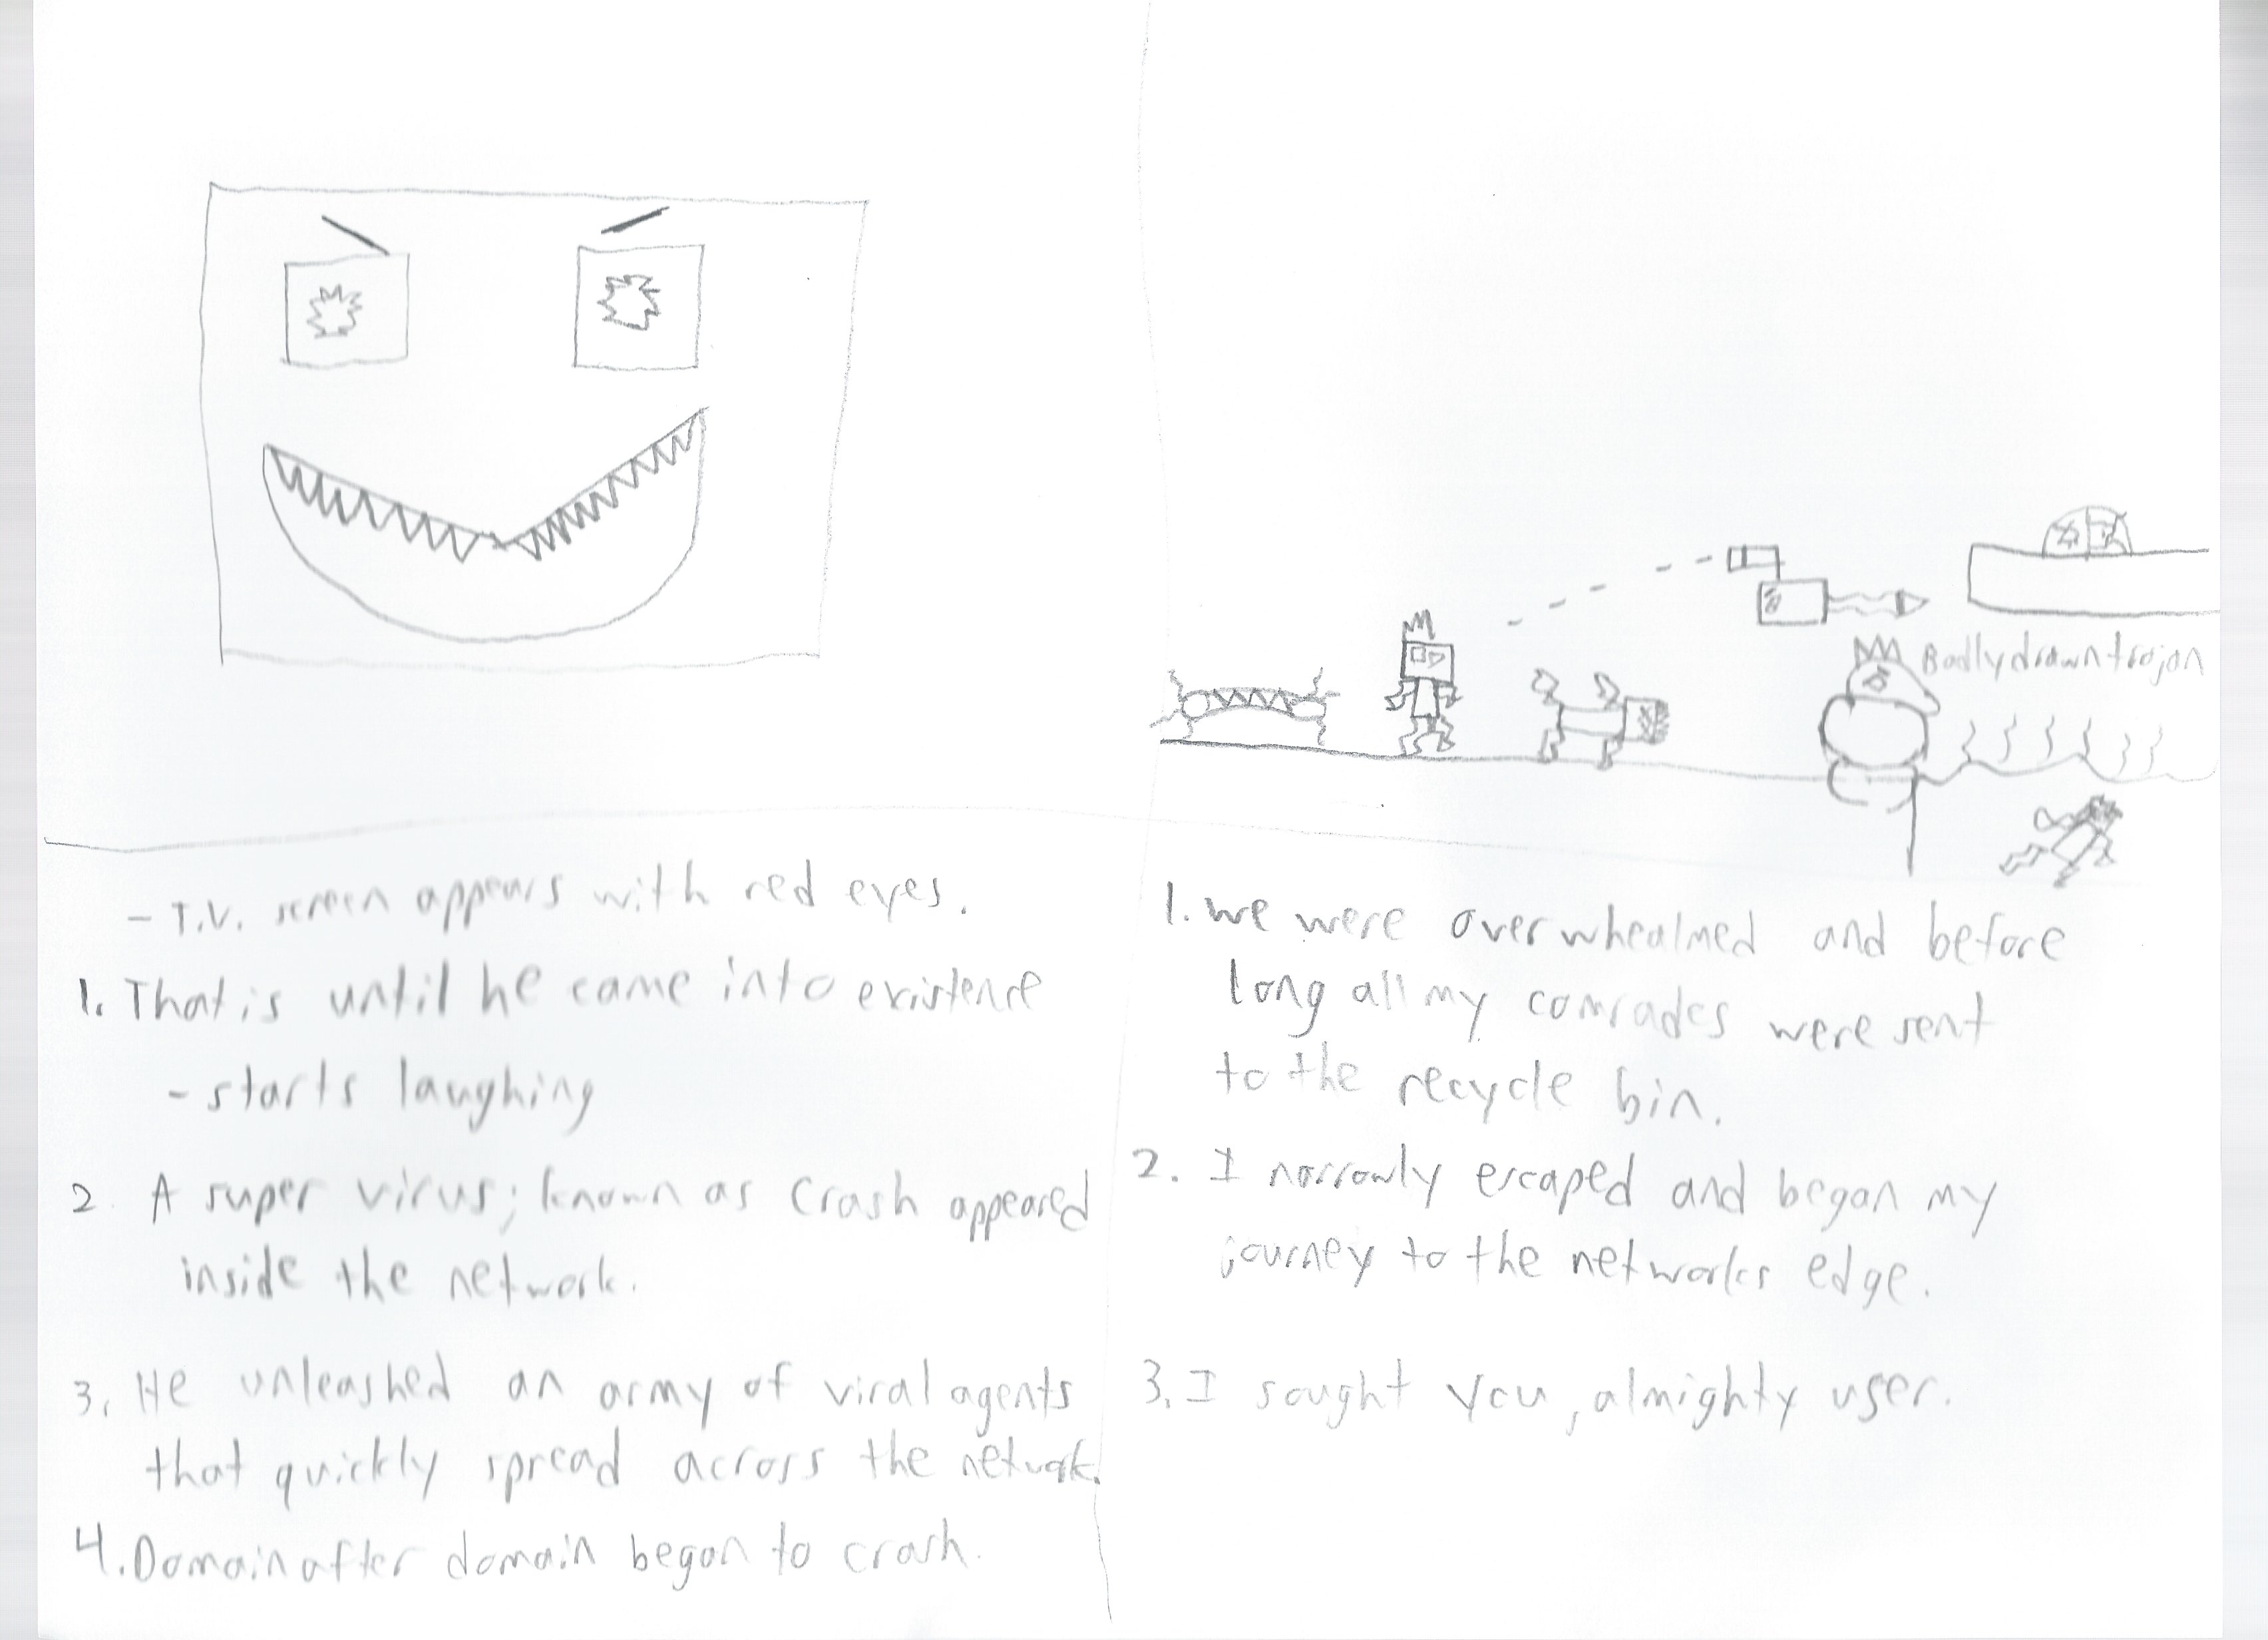 Badly drawn trojan
- T.V. screen appears with red eyes.
1. That is until he came into existence
- starts laughing
2. A super virus; known as Crash appeared
inside the network.
3. He unleashed an army of viral agents
that quickly spread across the network.
4. Domain after domain began to crash.
1. we were overwhealmed and before
long all my comrades were sent
to the recycle bin.
2. I narrowly escaped and began my
journey to the networks edge.
3. I sought you, almighty user.